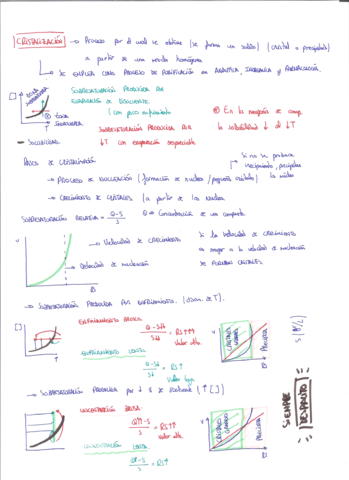 CRISTALIZACIÓN → Proceso por el cual se obtiene (se forma un solido) (cristal o precipitado)
a partir de una mezcla homogénea
→ Se emplea como proceso de purificación en analítica, inorgánica y
[ ]
ZONA
SOBRESATURACIÓN PRODUCIDA POR
EVAPORACIÓN DE DISOLVENTE.
(con poco enfriamiento
ZONA
T
En la mayoría de comp.
la solubilidad ↓ al ↓T
SOBRESATURACIÓN PRODUCIDA POR
↓T con evaporación despreciable
— SOLUBILIDAD
FASES DE CRISTALIZACIÓN
→ PROCESO DE NUCLEACIÓN (formación de nucleos / pequeños cristales)
→ CRECIMIENTO DE CRISTALES (a partir de los nucleos
Si no se producen
SOBRESATURACIÓN RELATIVA = Q-S/S
Q = Concentración de un compuesto
V
→ Velocidad de CRECIMIENTO
→ Velocidad de nucleación
RS
Si la velocidad de CRECIMIENTO
es mayor a la velocidad de nucleación
SE FORMAN CRISTALES
→ SOBRESATURACIÓN PRODUCIDA POR ENFRIAMIENTO. (dism. de T).
[ ]
T
ENFRIAMIENTO BRUSCO
Q-S↓↓/S↓↓ = RS↑↑
Valor alto
ENFRIAMIENTO LENTO
Q-S↓/S↓ = RS↑
Valor bajo
V
CRISTALES
GRANDES
PRECIPITA
RS
S (g/L)
→ SOBRESATURACIÓN PRODUCIDA POR ↓ de disolvente (↑[ ])
CONCENTRACIÓN BRUSCA
Q↑↑-S/S = RS↑↑
Valor alto
CONCENTRACIÓN LENTA
Q↑-S/S = RS↑
V
CRISTALES
GRANDES
PRECIPITA
RS
SIEMPRE
DESPACITO